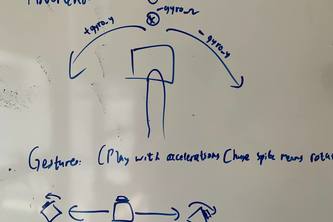 -gyro_z
+gyro_y
- gyro_y
Gestures: (Play with accelerations (huge spike means rota